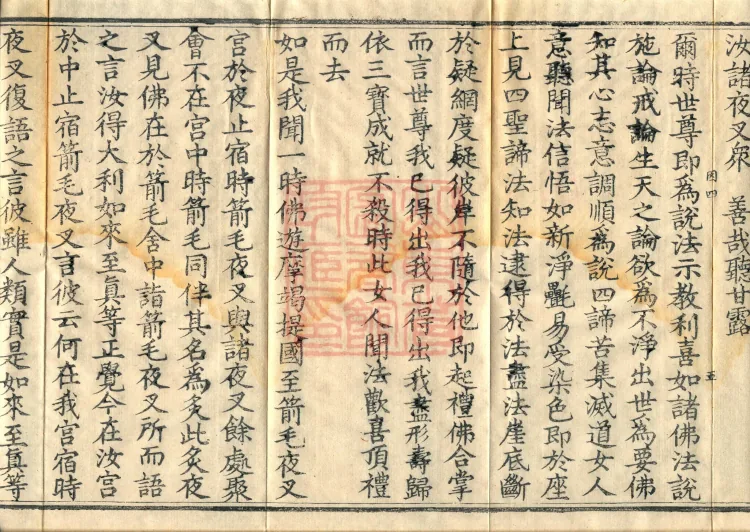 汝諸夜叉衆　善哉聽甘露
爾時世尊即爲說法示教利喜如諸佛法說
施論戒論生天之論欲爲不淨出世爲要佛
知其心志意調順爲說四諦苦集滅道女人
意聽聞法信悟如新淨㲲易受染色即於座
上見四聖諦法知法逮得於法盡法崖底斷
於疑網度疑彼岸不隨於他即起禮佛合掌
而言世尊我已得出我已得出我盡形壽歸
依三寶成就不殺時此女人聞法歡喜頂禮
而去
如是我聞一時佛遊摩竭提國至箭毛夜叉
宮於夜止宿時箭毛夜叉與諸夜叉餘處聚
會不在宮中時箭毛同伴其名爲炙此炙夜
叉見佛在於箭毛舍中詣箭毛夜叉所而語
之言汝得大利如來至真等正覺今在汝宮
於中止宿箭毛夜叉言彼云何在我宮宿時
夜叉復語之言彼雖人類實是如來至真等